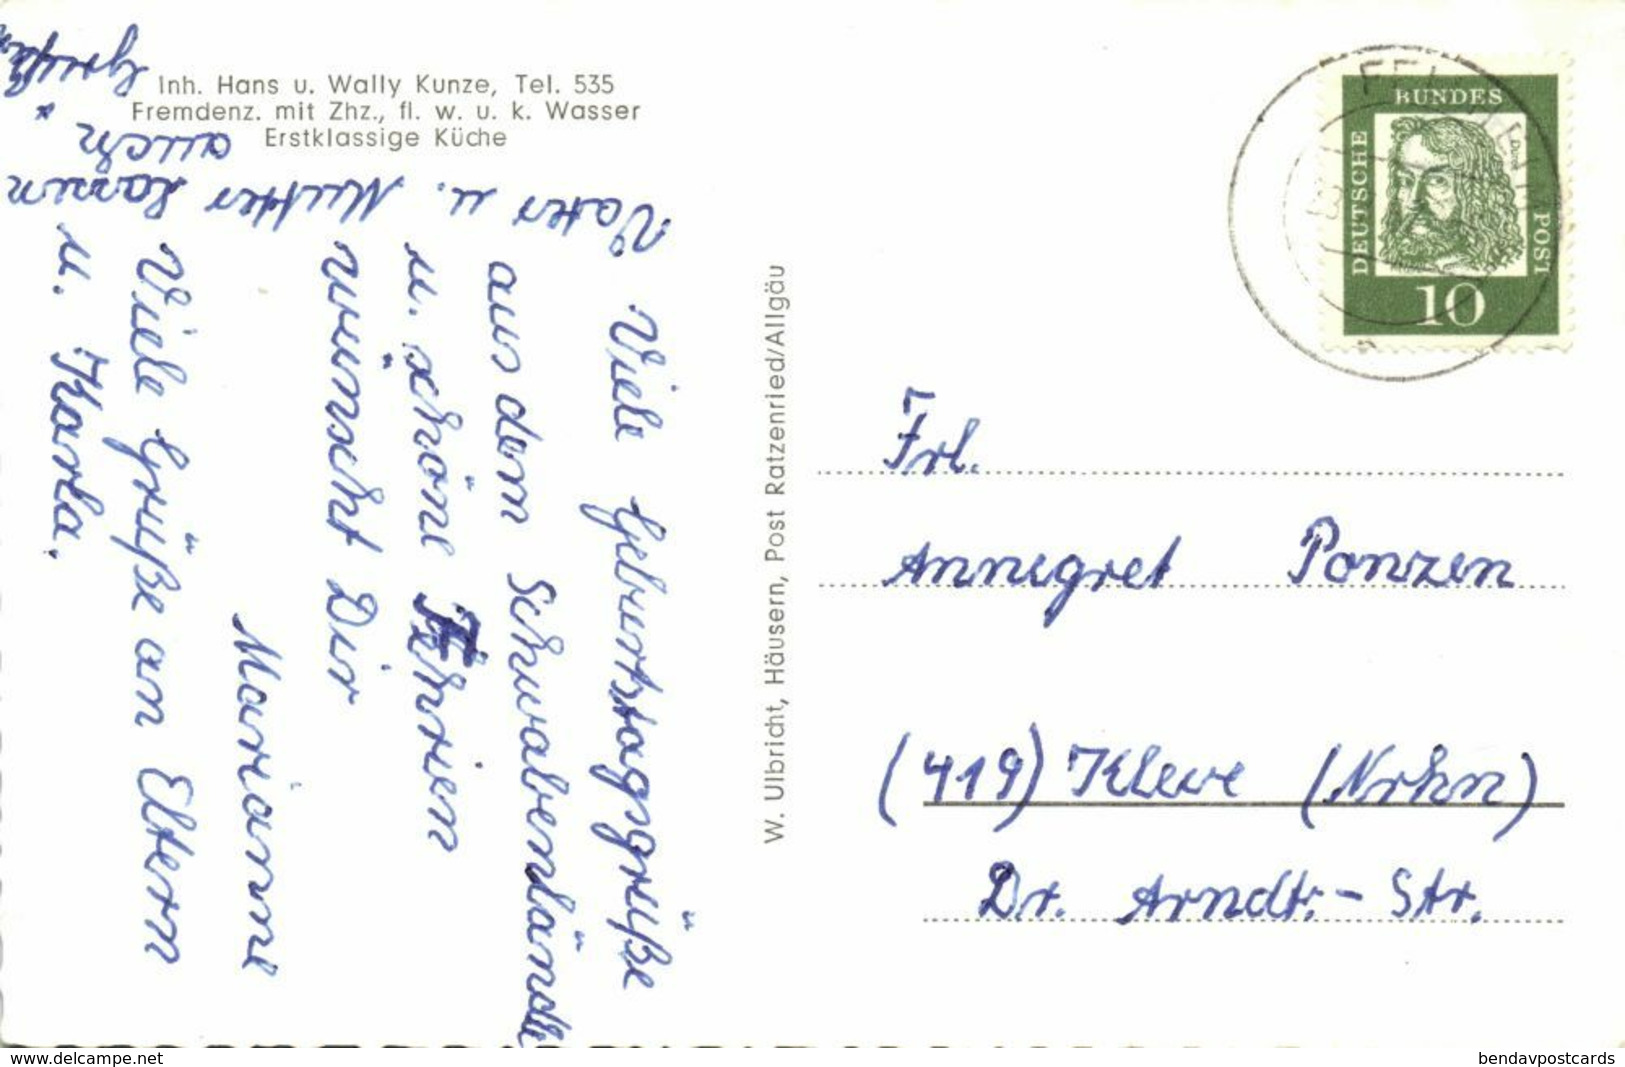 Inh. Hans u. Wally Kunze, Tel. 535
Fremdenz. mit Zhz., fl. w. u. k. Wasser
Erstklassige Küche
Viele Geburtstagsgrüße
aus dem Schwabenländle
u. schöne Fehrien
wünscht Dir
Marianne
Viele Grüße an Eltern
u. Karla.
Vater u. Mutter lassen
auch
Grüßen
W. Ulbricht, Häusern, Post Ratzenried/Allgäu
DEUTSCHE
BUNDES
POST
10
Frl.
Annegret Ponzen
(419) Kleve (Nrhn)
Dr. Arndt.-Str.
www.delcampe.net
bendavpostcards